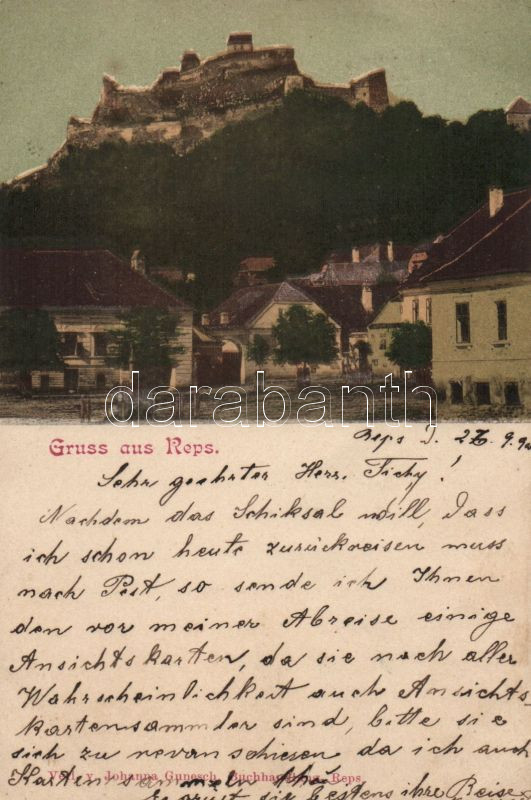 darabanth
Gruss aus Reps.
Reps J. 27. 9. 9
Sehr geehrter Herr. Tichy!
Nachdem das Schiksal will, dass
ich schon heute zurückreisen muss
nach Pest, so sende ich Ihnen
den vor meiner Abreise einige
Ansichtskarten, da sie nach aller
Wahrscheinlichkeit auch Ansichts
kartensammler sind, bitte sie
sich zu revanschiesen da ich auch
Karten sammele
Verl. v. Johanna Gunesch, Buchhandlung, Reps.
bestens ihre